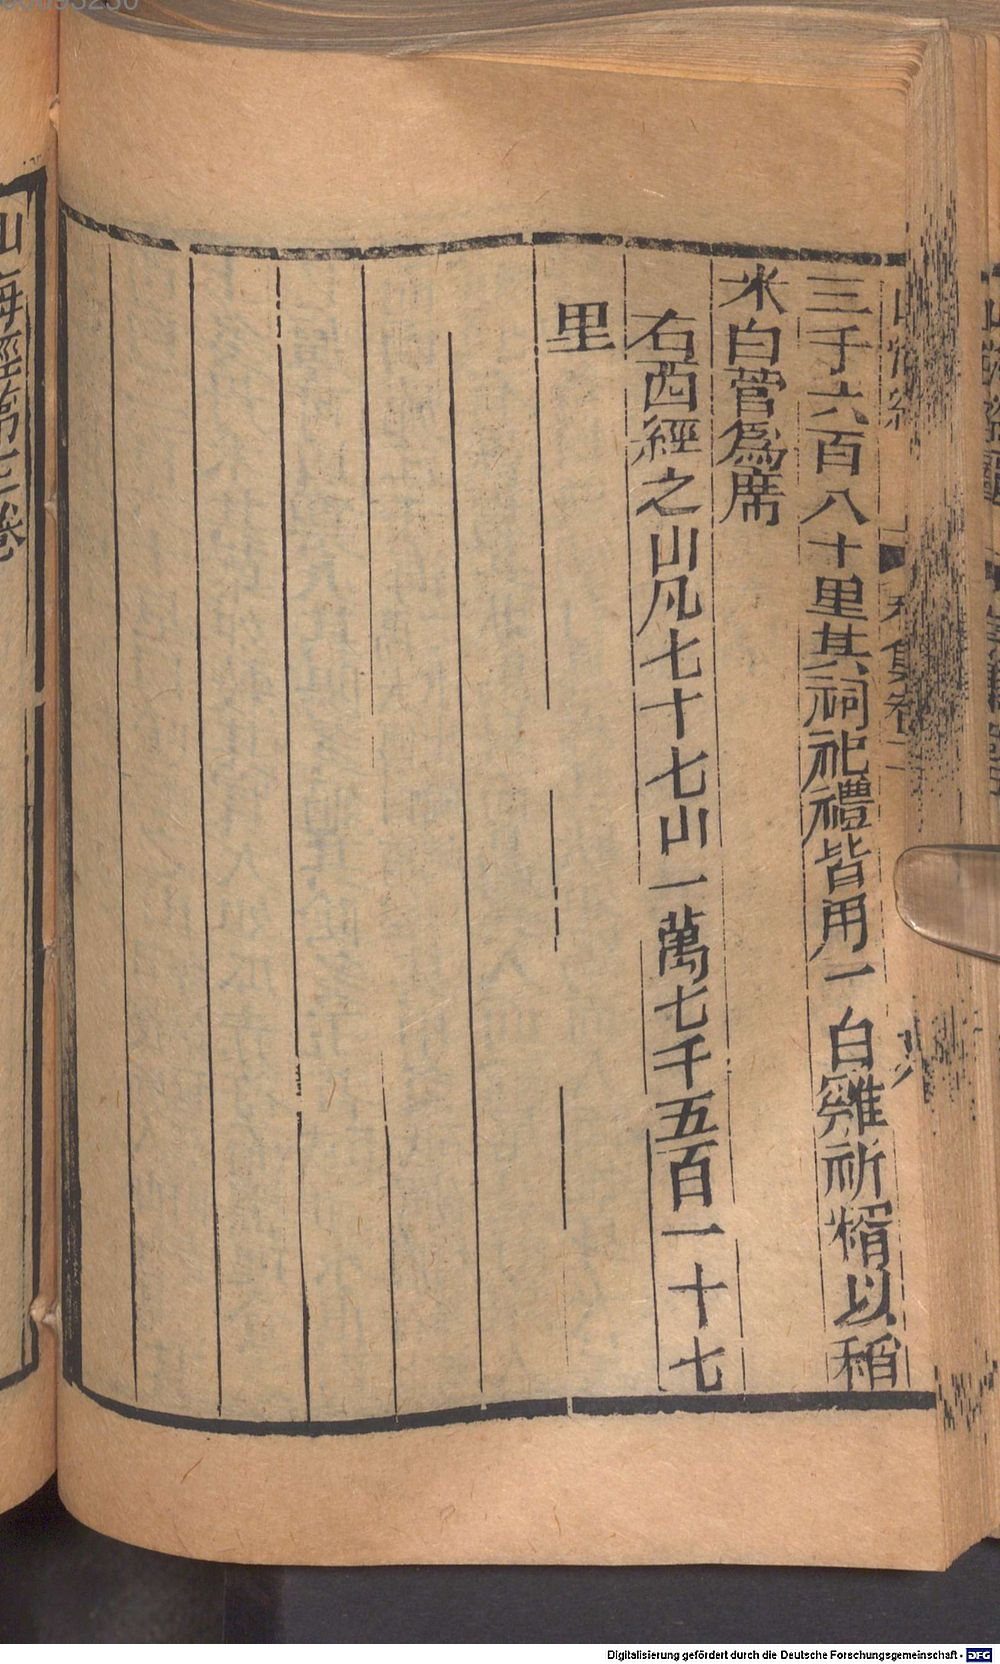 三千六百八十里其祠祀禮皆用一白雞祈糈以稻
米白菅爲席
右西經之山凡七十七山一萬七千五百一十七
里
山海經第三卷
Digitalisierung gefördert durch die Deutsche Forschungsgemeinschaft - DFG